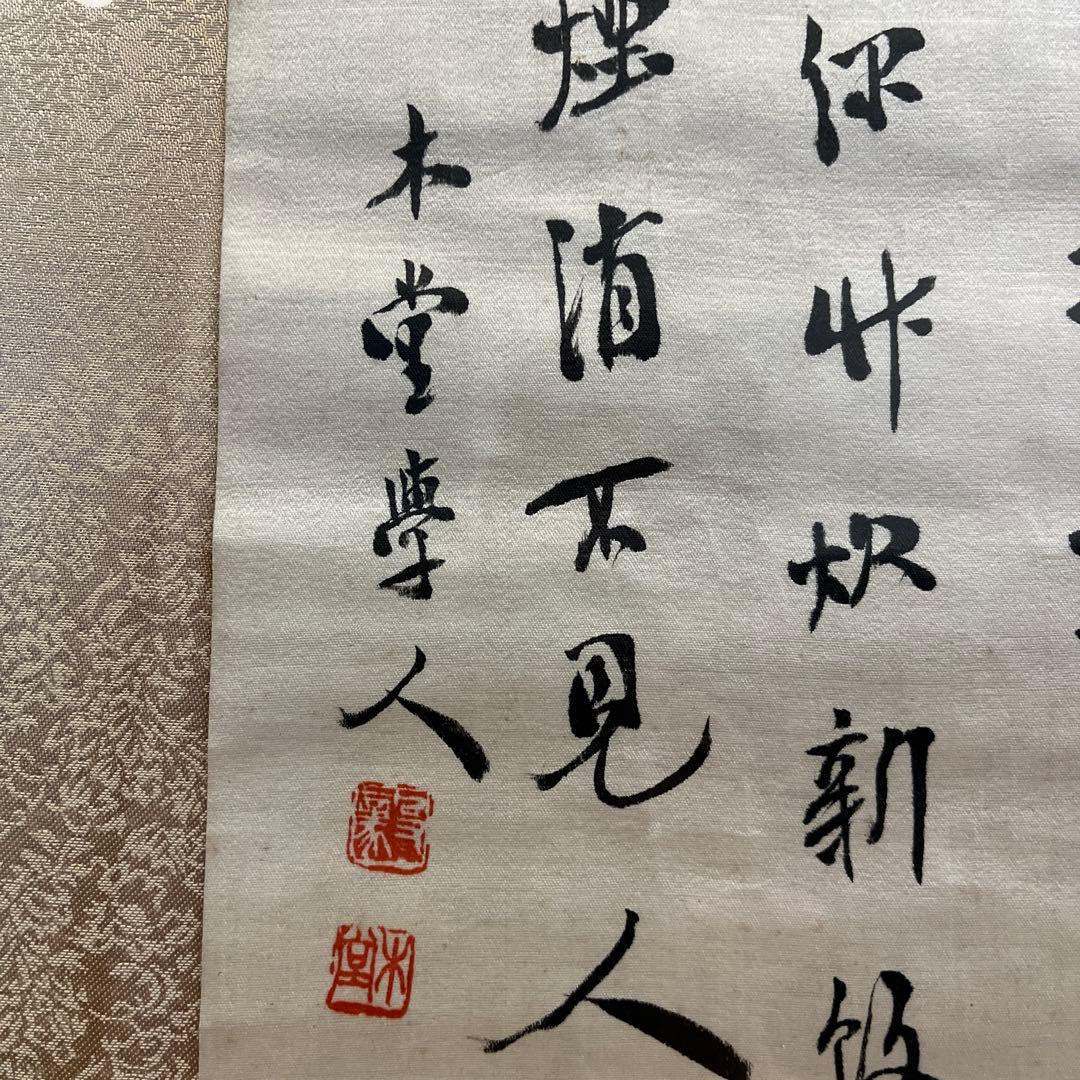 竹炊新飯
煙消不見人
木堂學人
木堂